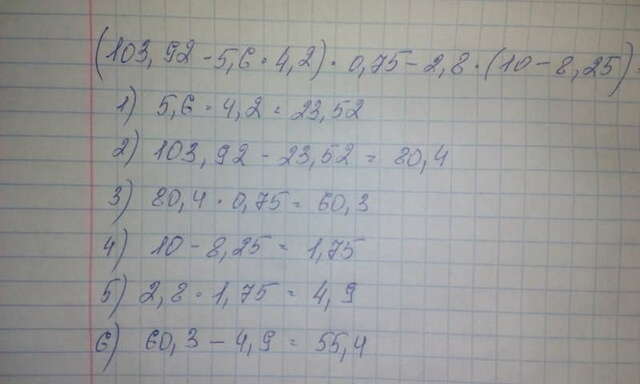 (103,92 - 5,6 · 4,2) · 0,75 - 2,8 · (10 - 8,25) =
1) 5,6 · 4,2 = 23,52
2) 103,92 - 23,52 = 80,4
3) 80,4 · 0,75 = 60,3
4) 10 - 8,25 = 1,75
5) 2,8 · 1,75 = 4,9
6) 60,3 - 4,9 = 55,4